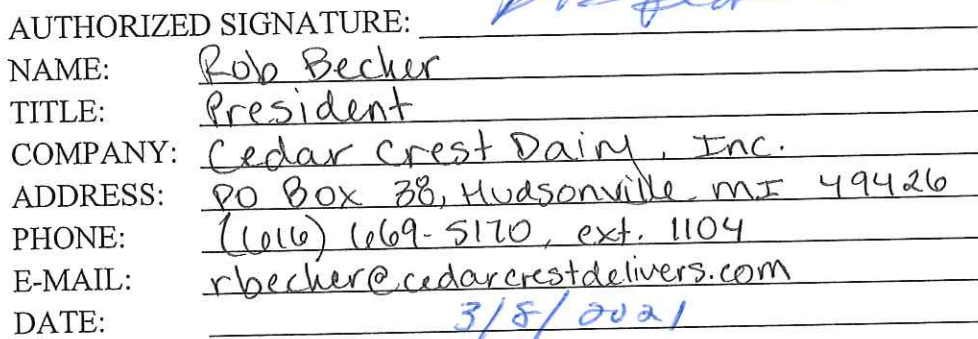 AUTHORIZED SIGNATURE:
NAME: Rob Becker
TITLE: President
COMPANY: Cedar Crest Dairy, Inc.
ADDRESS: PO Box 38, Hudsonville MI 49426
PHONE: (616) 669-5170, ext. 1104
E-MAIL: rbecker@cedarcrestdelivers.com
DATE: 3/8/2021